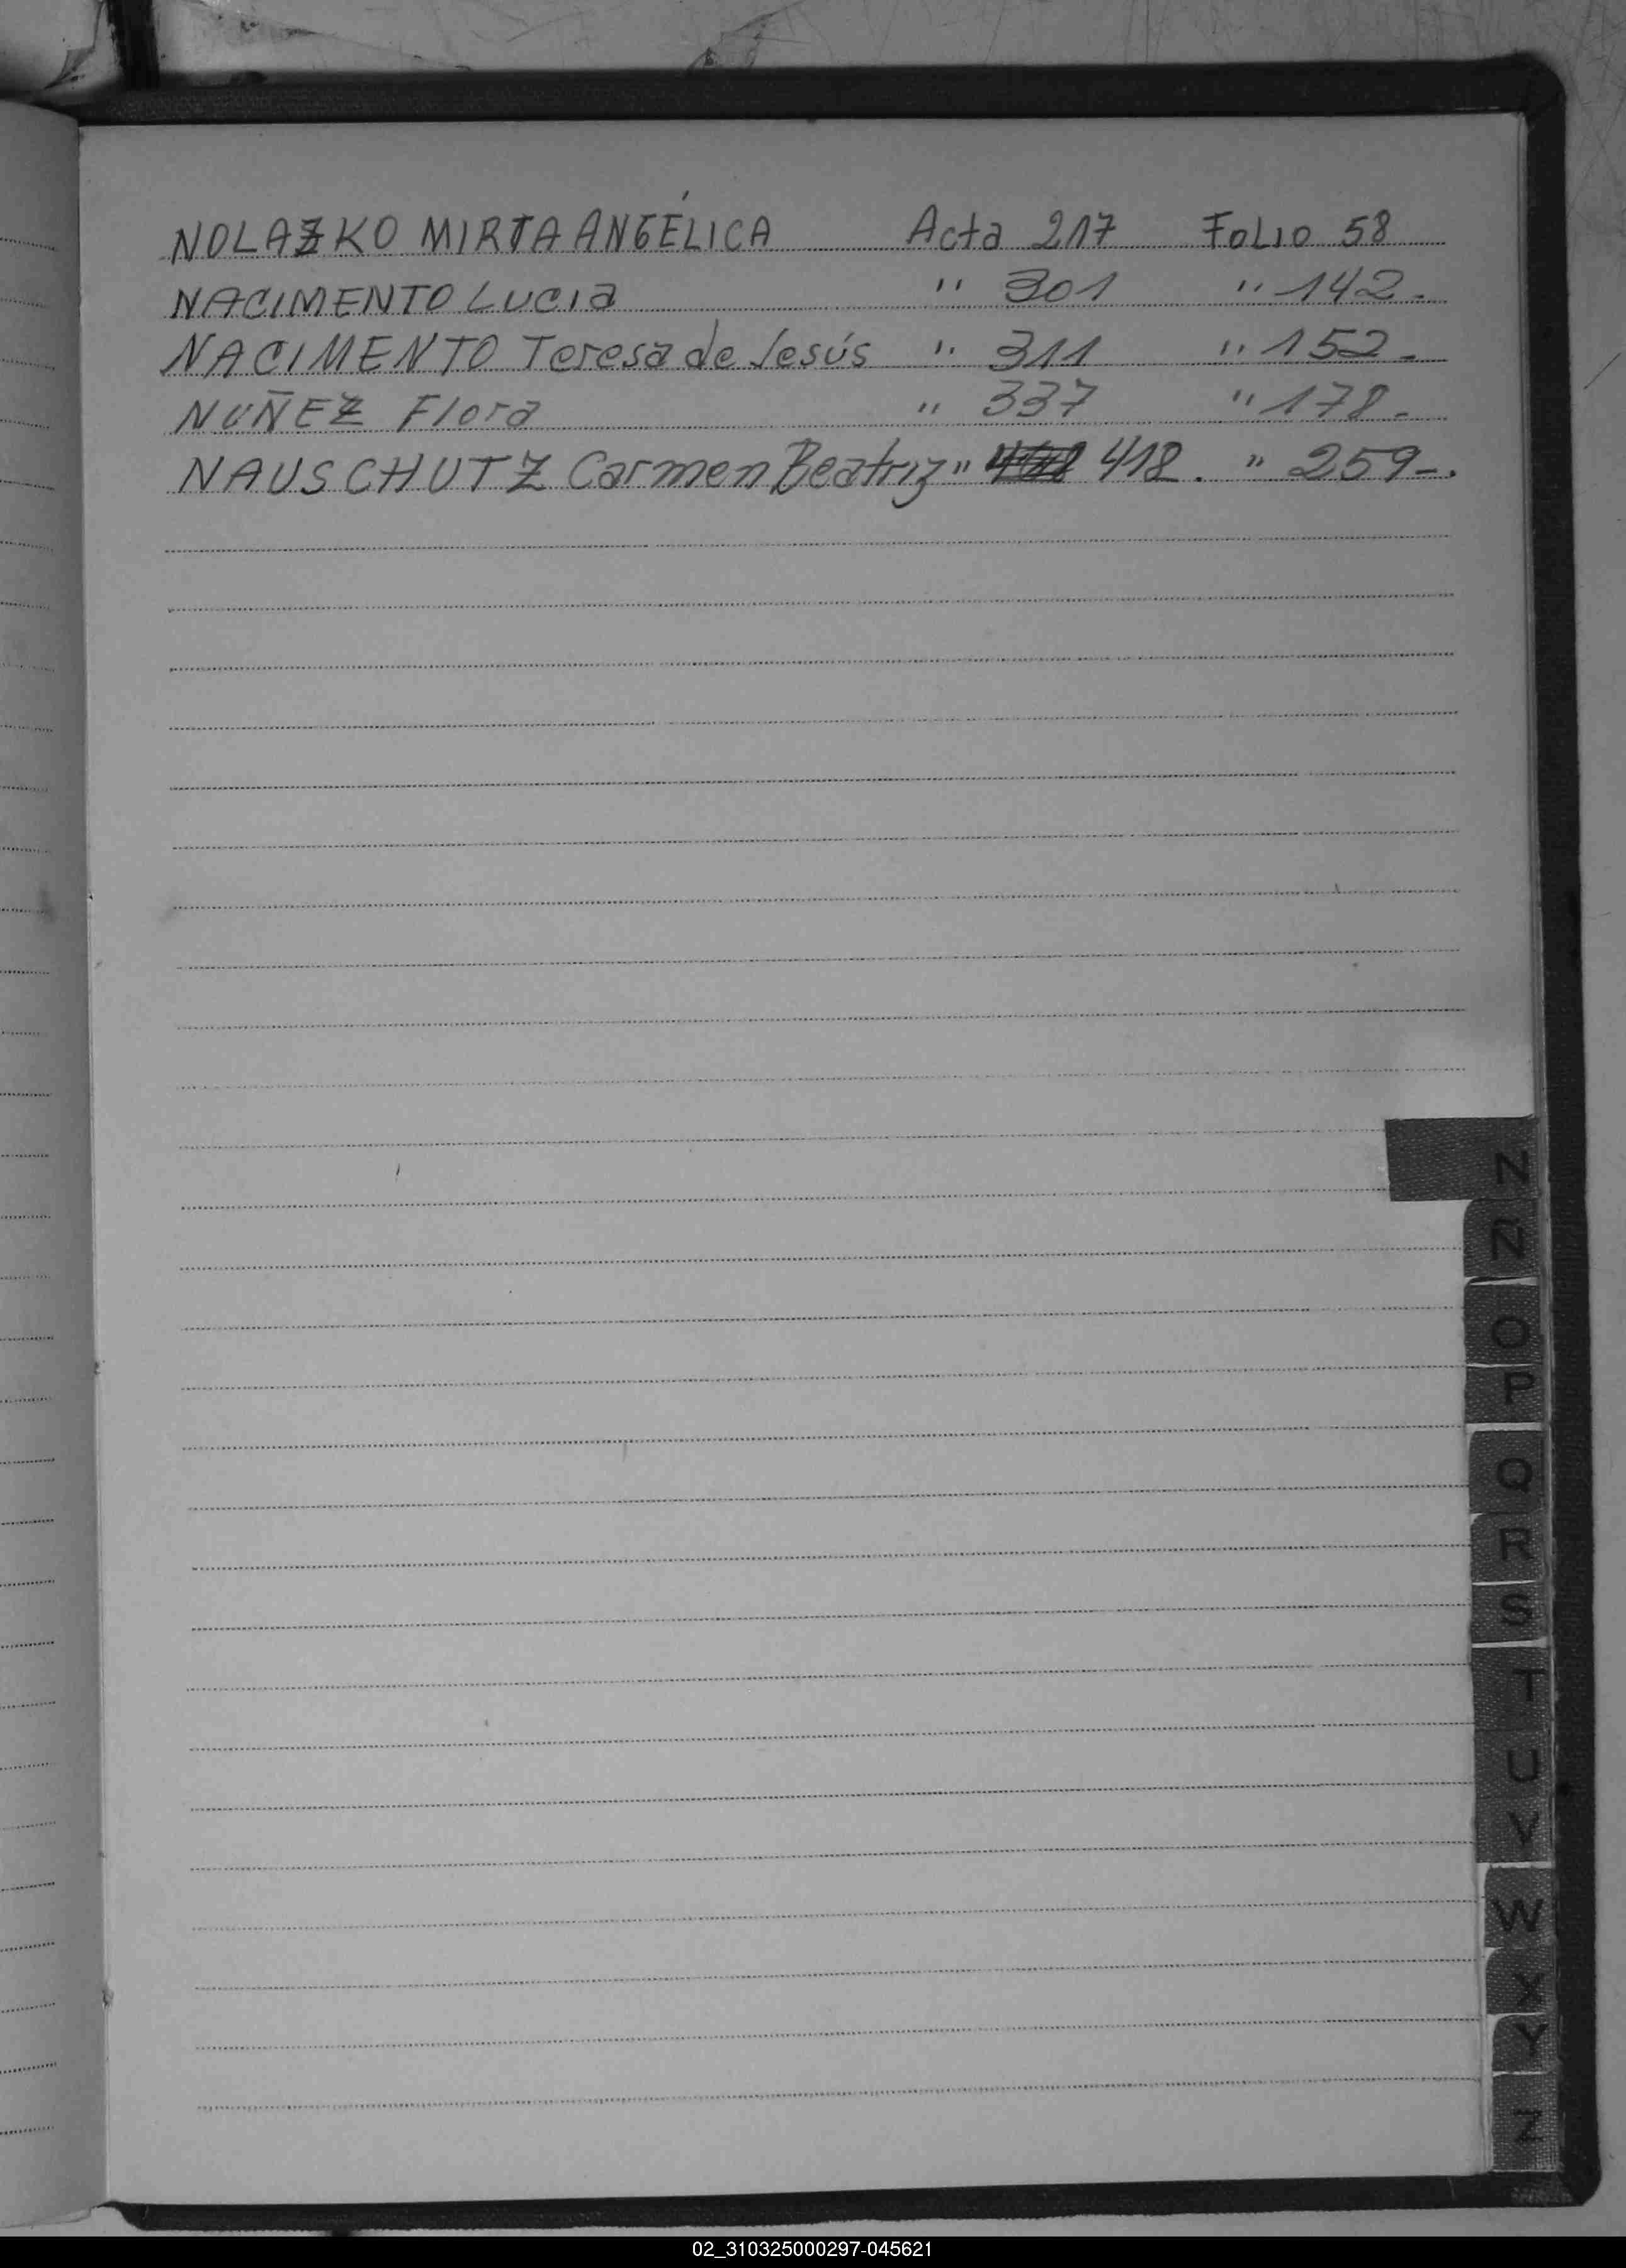 NOLAZKO MIRTA ANGÉLICA Acta 217 Folio 58
NACIMENTO LUCIA " 301 " 142.
NACIMENTO Teresa de Jesús " 311 " 152.
NUÑEZ Flora " 337 " 178.
NAUSCHUTZ Carmen Beatriz " 418. " 259-.
N
Ñ
O
P
Q
R
S
T
U
V
W
X
Y
Z
02_310325000297-045621